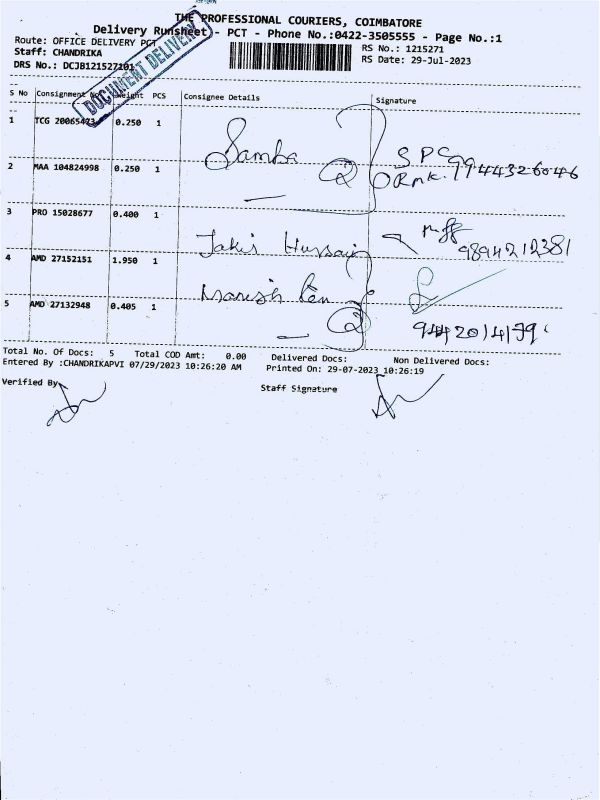 THE PROFESSIONAL COURIERS, COIMBATORE
Delivery Runsheet - PCT - Phone No.:0422-3505555 - Page No.:1
Route: OFFICE DELIVERY PCT
Staff: CHANDRIKA
DRS No.: DCJB121527101
RS No.: 1215271
RS Date: 29-Jul-2023
DOCUMENT DELIVERY
S No Consignment No Weight PCS Consignee Details Signature
1 TCG 20065423 0.250 1
Samba
SPC 9944326046
2 MAA 104824998 0.250 1
2
3 PRO 15028677 0.400 1
Jakir Hussain
9894212381
4 AMD 27152151 1.950 1
5 AMD 27132948 0.405 1
2
Total No. Of Docs: 5 Total COD Amt: 0.00 Delivered Docs: Non Delivered Docs:
Entered By :CHANDRIKAPVI 07/29/2023 10:26:20 AM Printed On: 29-07-2023 10:26:19
Verified By
Staff Signature